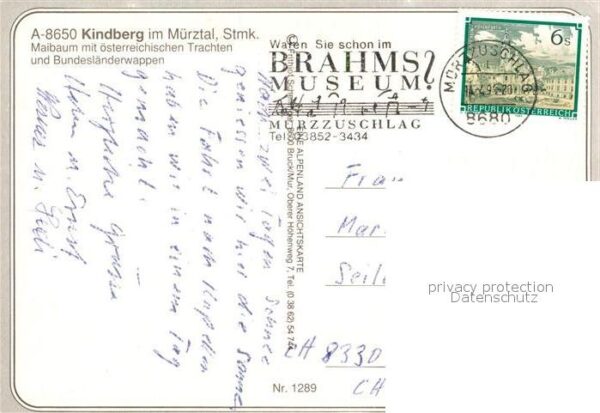 A-8650 Kindberg im Mürztal, Stmk.
Maibaum mit österreichischen Trachten
und Bundesländerwappen
Waren Sie schon im
BRAHMS
MUSEUM?
MÜRZZUSCHLAG
Tel. 03852-3434
MÜRZZUSCHLAG
8680
6 S
REPUBLIK ÖSTERREICH
Nach zwei Tagen Schnee
geniessen wir hier die Sonne
Die Fahrt nach
haben wir in einem Tag
gemacht.
Herzliche Grüsse
ALPENLAND ANSICHTSKARTE
8600 Bruck/Mur, Oberer Höhenweg 7, Tel. (0 38 62) 54 7
Frau
Mar
Seil
CH 8330
CH
Nr. 1289
privacy protection
Datenschutz